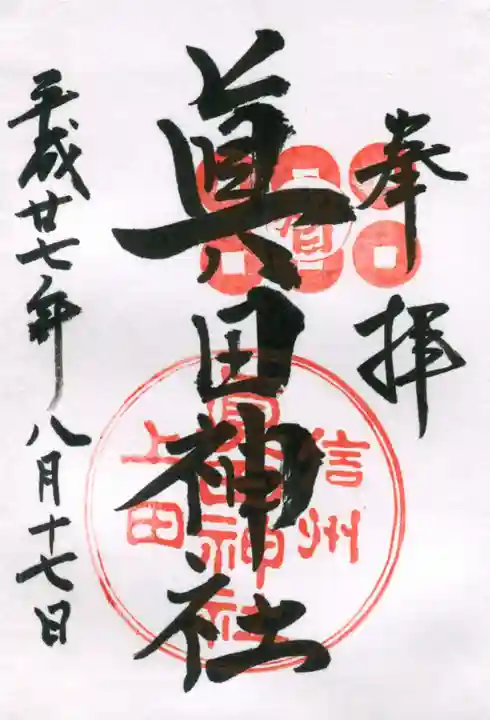 奉拝
眞田神社
平成廿七年八月十七日
信州
眞田神社
上田